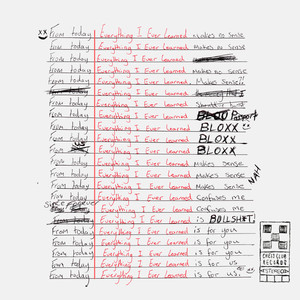 xx
From today Everything I Ever Learned makes no sense
From today Everything I Ever Learned Makes no Sense
From today Everything I Ever Learned
From today Everything I Ever Learned makes no sense
From today Everything I Ever Learned Makes Sense??
From today Everything I Ever Learned
From today Everything I Ever Learned
From today Everything I Ever Learned Passport
From today Everything I Ever Learned BLOXX
From today Everything I Ever Learned BLOXX
From today Everything I Ever Learned BLOXX
From today Everything I Ever Learned makes sense
From today Everything I Ever Learned makes sense
From today Everything I Ever Learned Makes sense
From today Everything I Ever Learned Confuses me
Everything I Ever Learned Confuses me
From today Everything I Ever Learned is BOLLSH*T
From today Everything I Ever Learned is for you
From today Everything I Ever Learned is for you
From today Everything I Ever Learned is for you
From today Everything I Ever Learned is for you
From today Everything I Ever Learned is for us.
CHESS CLUB
RECORDS